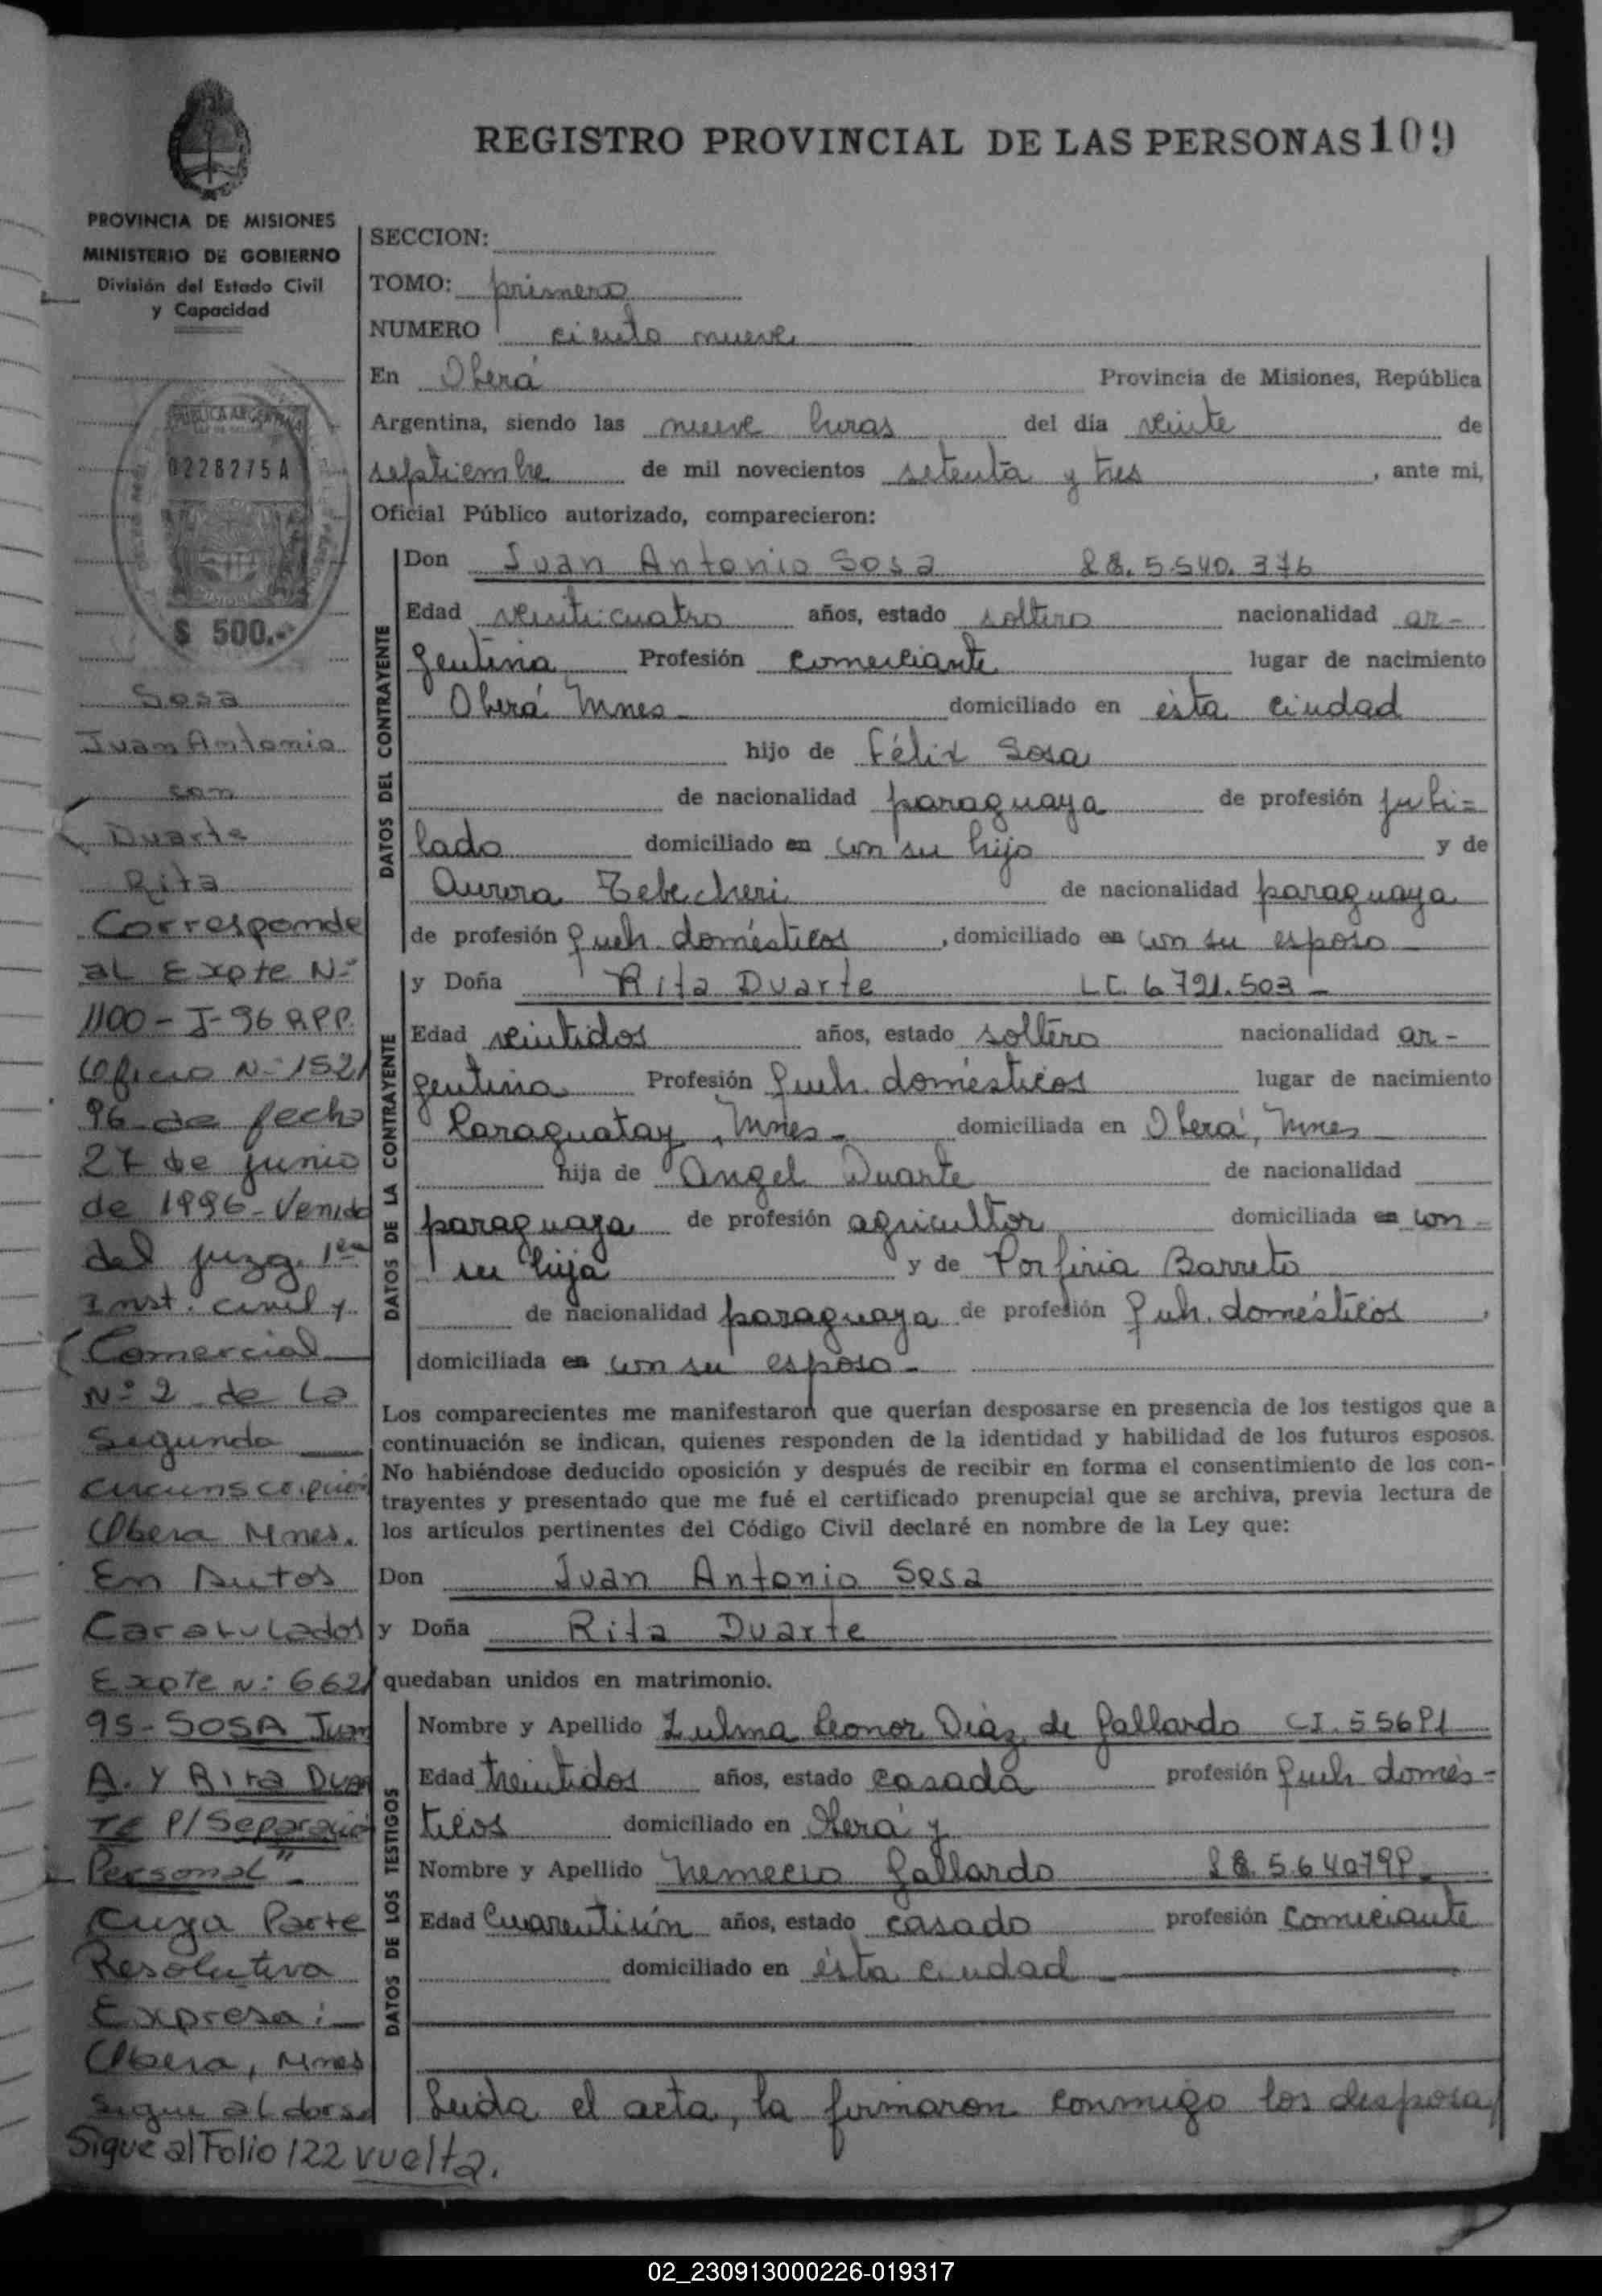 REGISTRO PROVINCIAL DE LAS PERSONAS 109
PROVINCIA DE MISIONES
MINISTERIO DE GOBIERNO
División del Estado Civil
y Capacidad
0228275A
$ 500.-
Sosa
Juan Antonio
con
Duarte
Rita
Corresponde
al Expte Nº
1100-J-96 RPP.
Oficio Nº 152/
96 de fecha
27 de junio
de 1996 - Venido
del juzg. 1era
Inst. Civil y
Comercial
Nº 2 de la
Segunda
Circunscripción
Obera Mnes.
En Autos
Caratulados
Expte Nº: 662/
95 - SOSA Juan
A. y Rita Duar
te P/ Separació
Personal" -
Cuya Parte
Resolutiva
Expresa:
Obera, Mnes
Sigue al dorso
Sigue al Folio 122 vuelta.
SECCION:
TOMO: primero
NUMERO ciento nueve
En Oberá Provincia de Misiones, República
Argentina, siendo las nueve horas del día veinte de
septiembre de mil novecientos setenta y tres, ante mi,
Oficial Público autorizado, comparecieron:
DATOS DEL CONTRAYENTE
Don Juan Antonio Sosa 5.540.376
Edad veinticuatro años, estado soltero nacionalidad ar-
gentina Profesión comerciante lugar de nacimiento
Oberá Mnes - domiciliado en ésta ciudad
hijo de Félix Sosa
de nacionalidad paraguaya de profesión jubi-
lado domiciliado en con su hijo y de
Aurora de nacionalidad paraguaya
de profesión queh. domésticos, domiciliado en con su esposo -
DATOS DE LA CONTRAYENTE
y Doña Rita Duarte LC. 6.721.503 -
Edad veintidos años, estado soltera nacionalidad ar-
gentina Profesión queh. domésticos lugar de nacimiento
Paraguatay, Mnes - domiciliada en Oberá, Mnes
hija de Angel Duarte de nacionalidad
paraguaya de profesión agricultor domiciliada en con -
su hija y de Porfiria Barreto
de nacionalidad paraguaya de profesión queh. domésticos,
domiciliada en con su esposo -
Los comparecientes me manifestaron que querían desposarse en presencia de los testigos que a
continuación se indican, quienes responden de la identidad y habilidad de los futuros esposos.
No habiéndose deducido oposición y después de recibir en forma el consentimiento de los con-
trayentes y presentado que me fué el certificado prenupcial que se archiva, previa lectura de
los artículos pertinentes del Código Civil declaré en nombre de la Ley que:
Don Juan Antonio Sosa
y Doña Rita Duarte
quedaban unidos en matrimonio.
DATOS DE LOS TESTIGOS
Nombre y Apellido Zulma Leonor Díaz de Gallardo CI. 55681
Edad treintidos años, estado casada profesión queh domés-
ticos domiciliado en Oberá y
Nombre y Apellido Nemecio Gallardo 5.640798 -
Edad Cuarentiún años, estado casado profesión comerciante
domiciliado en ésta ciudad -
Leida el acta, la firmaron conmigo los desposa
02_230913000226-019317